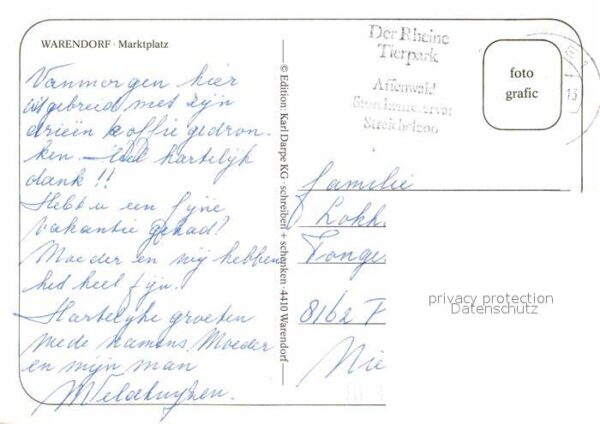 WARENDORF · Marktplatz
Vanmorgen hier
uitgebreid met zijn
drieën koffie gedron-
ken – Heel hartelijk
dank!!
Hebt u een fijne
vakantie gehad?
Moeder en wij hebben
het heel fijn.
Hartelijke groeten
mede namens Moeder
en mijn man
© Edition: Karl Darpe KG · schreiben + schenken · 4410 Warendorf
Der Rheine
Tierpark
Affenwald
Storchenreservat
Streichelzoo
foto
grafic
Familie
Lokh
Tonge
8162
Nie
privacy protection
Datenschutz